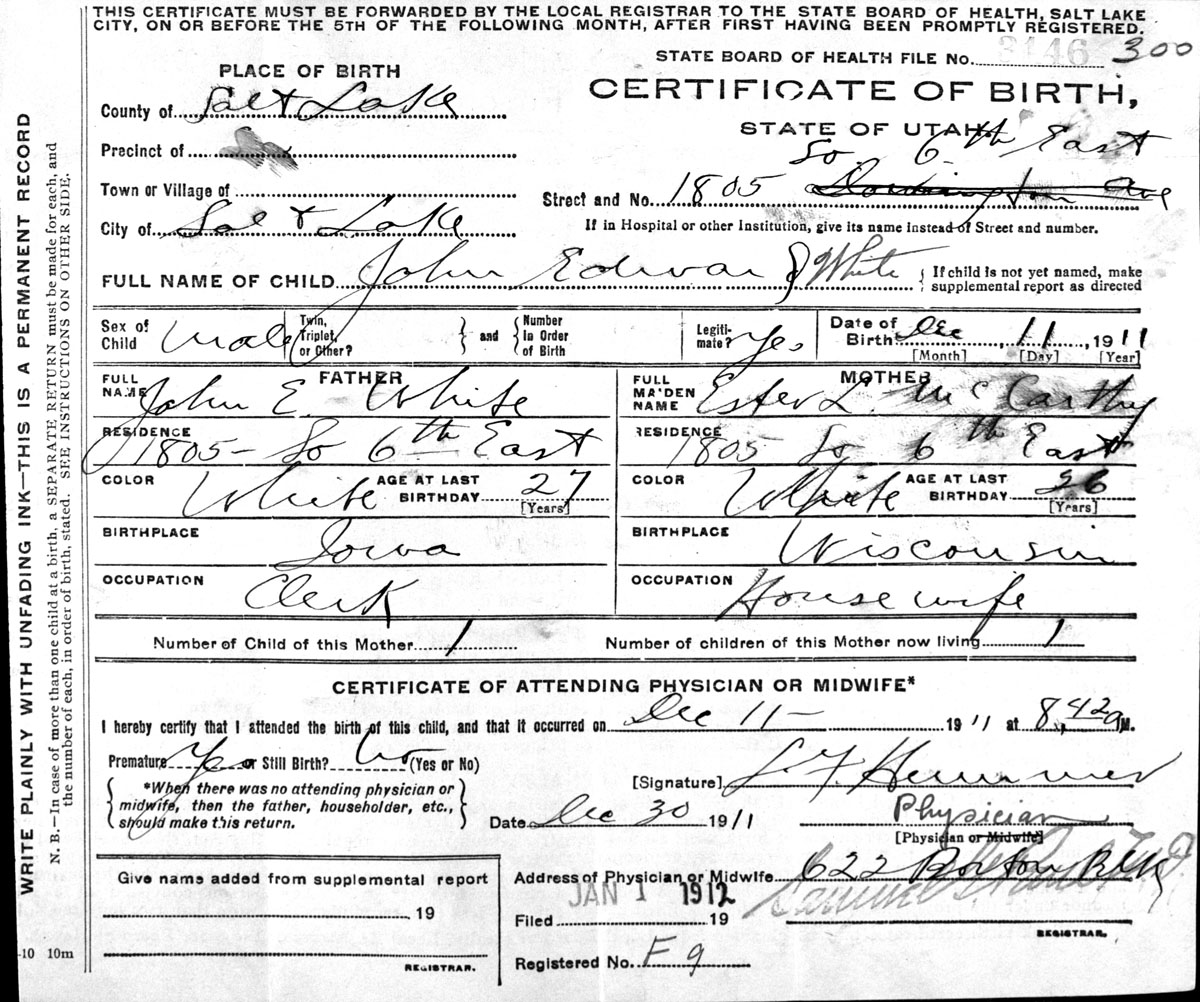 THIS CERTIFICATE MUST BE FORWARDED BY THE LOCAL REGISTRAR TO THE STATE BOARD OF HEALTH, SALT LAKE
CITY, ON OR BEFORE THE 5TH OF THE FOLLOWING MONTH, AFTER FIRST HAVING BEEN PROMPTLY REGISTERED.
STATE BOARD OF HEALTH FILE No. 3146 300
PLACE OF BIRTH
CERTIFICATE OF BIRTH,
County of Salt Lake
STATE OF UTAH
Precinct of
So. 6th East
Town or Village of
Street and No. 1805 Ave
City of Salt Lake
If in Hospital or other Institution, give its name instead of Street and number.
FULL NAME OF CHILD John Edward White { If child is not yet named, make
supplemental report as directed
Sex of Child Male
Twin, Triplet, or Other? } and { Number in Order of Birth
Legiti- mate? Yes
Date of Birth Dec, 11, 1911
[Month] [Day] [Year]
FATHER
FULL NAME John E. White
RESIDENCE 1805 - So 6th East
COLOR White AGE AT LAST BIRTHDAY 27 [Years]
BIRTHPLACE Iowa
OCCUPATION Clerk
MOTHER
FULL MAIDEN NAME Ester L. McCarthy
RESIDENCE 1805 So 6th East
COLOR White AGE AT LAST BIRTHDAY 26 [Years]
BIRTHPLACE Wisconsin
OCCUPATION Housewife
Number of Child of this Mother 1 Number of children of this Mother now living 1
CERTIFICATE OF ATTENDING PHYSICIAN OR MIDWIFE*
I hereby certify that I attended the birth of this child, and that it occurred on Dec 11 - 1911 at 8,42 a M.
Premature Yes or Still Birth? No (Yes or No)
[Signature] L F Hummer
{ *When there was no attending physician or
midwife, then the father, householder, etc.,
should make this return. }
Date Dec 30 1911
Physician
[Physician or Midwife]
Address of Physician or Midwife 622 Boston Bldg
Give name added from supplemental report
19
REGISTRAR.
JAN 1 1912
Filed 19
REGISTRAR.
Registered No. F 9
-10 10m
WRITE PLAINLY WITH UNFADING INK—THIS IS A PERMANENT RECORD
N. B.—In case of more than one child at a birth, a SEPARATE RETURN must be made for each, and
the number of each, in order of birth, stated. SEE INSTRUCTIONS ON OTHER SIDE.